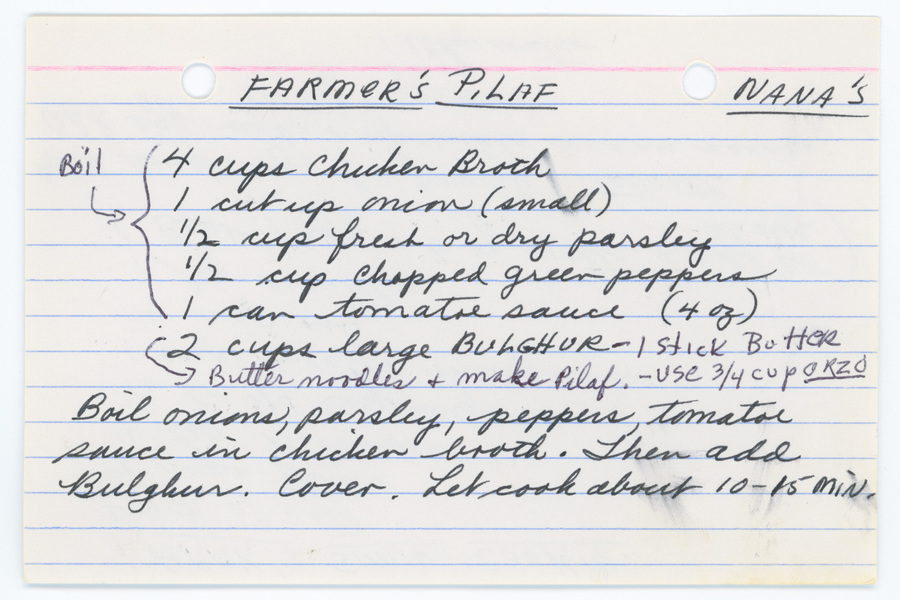 FARMER'S PILAF NANA'S
Boil 4 cups Chicken Broth
1 cut up onion (small)
1/2 cup fresh or dry parsley
1/2 cup chopped green peppers
1 can tomatoe sauce (4 oz)
2 cups large BULGHUR - 1 stick Butter
Butter noodles + make Pilaf. - USE 3/4 cup ORZO
Boil onions, parsley, peppers, tomatoe
sauce in chicken broth. Then add
Bulghur. Cover. Let cook about 10-15 MIN.